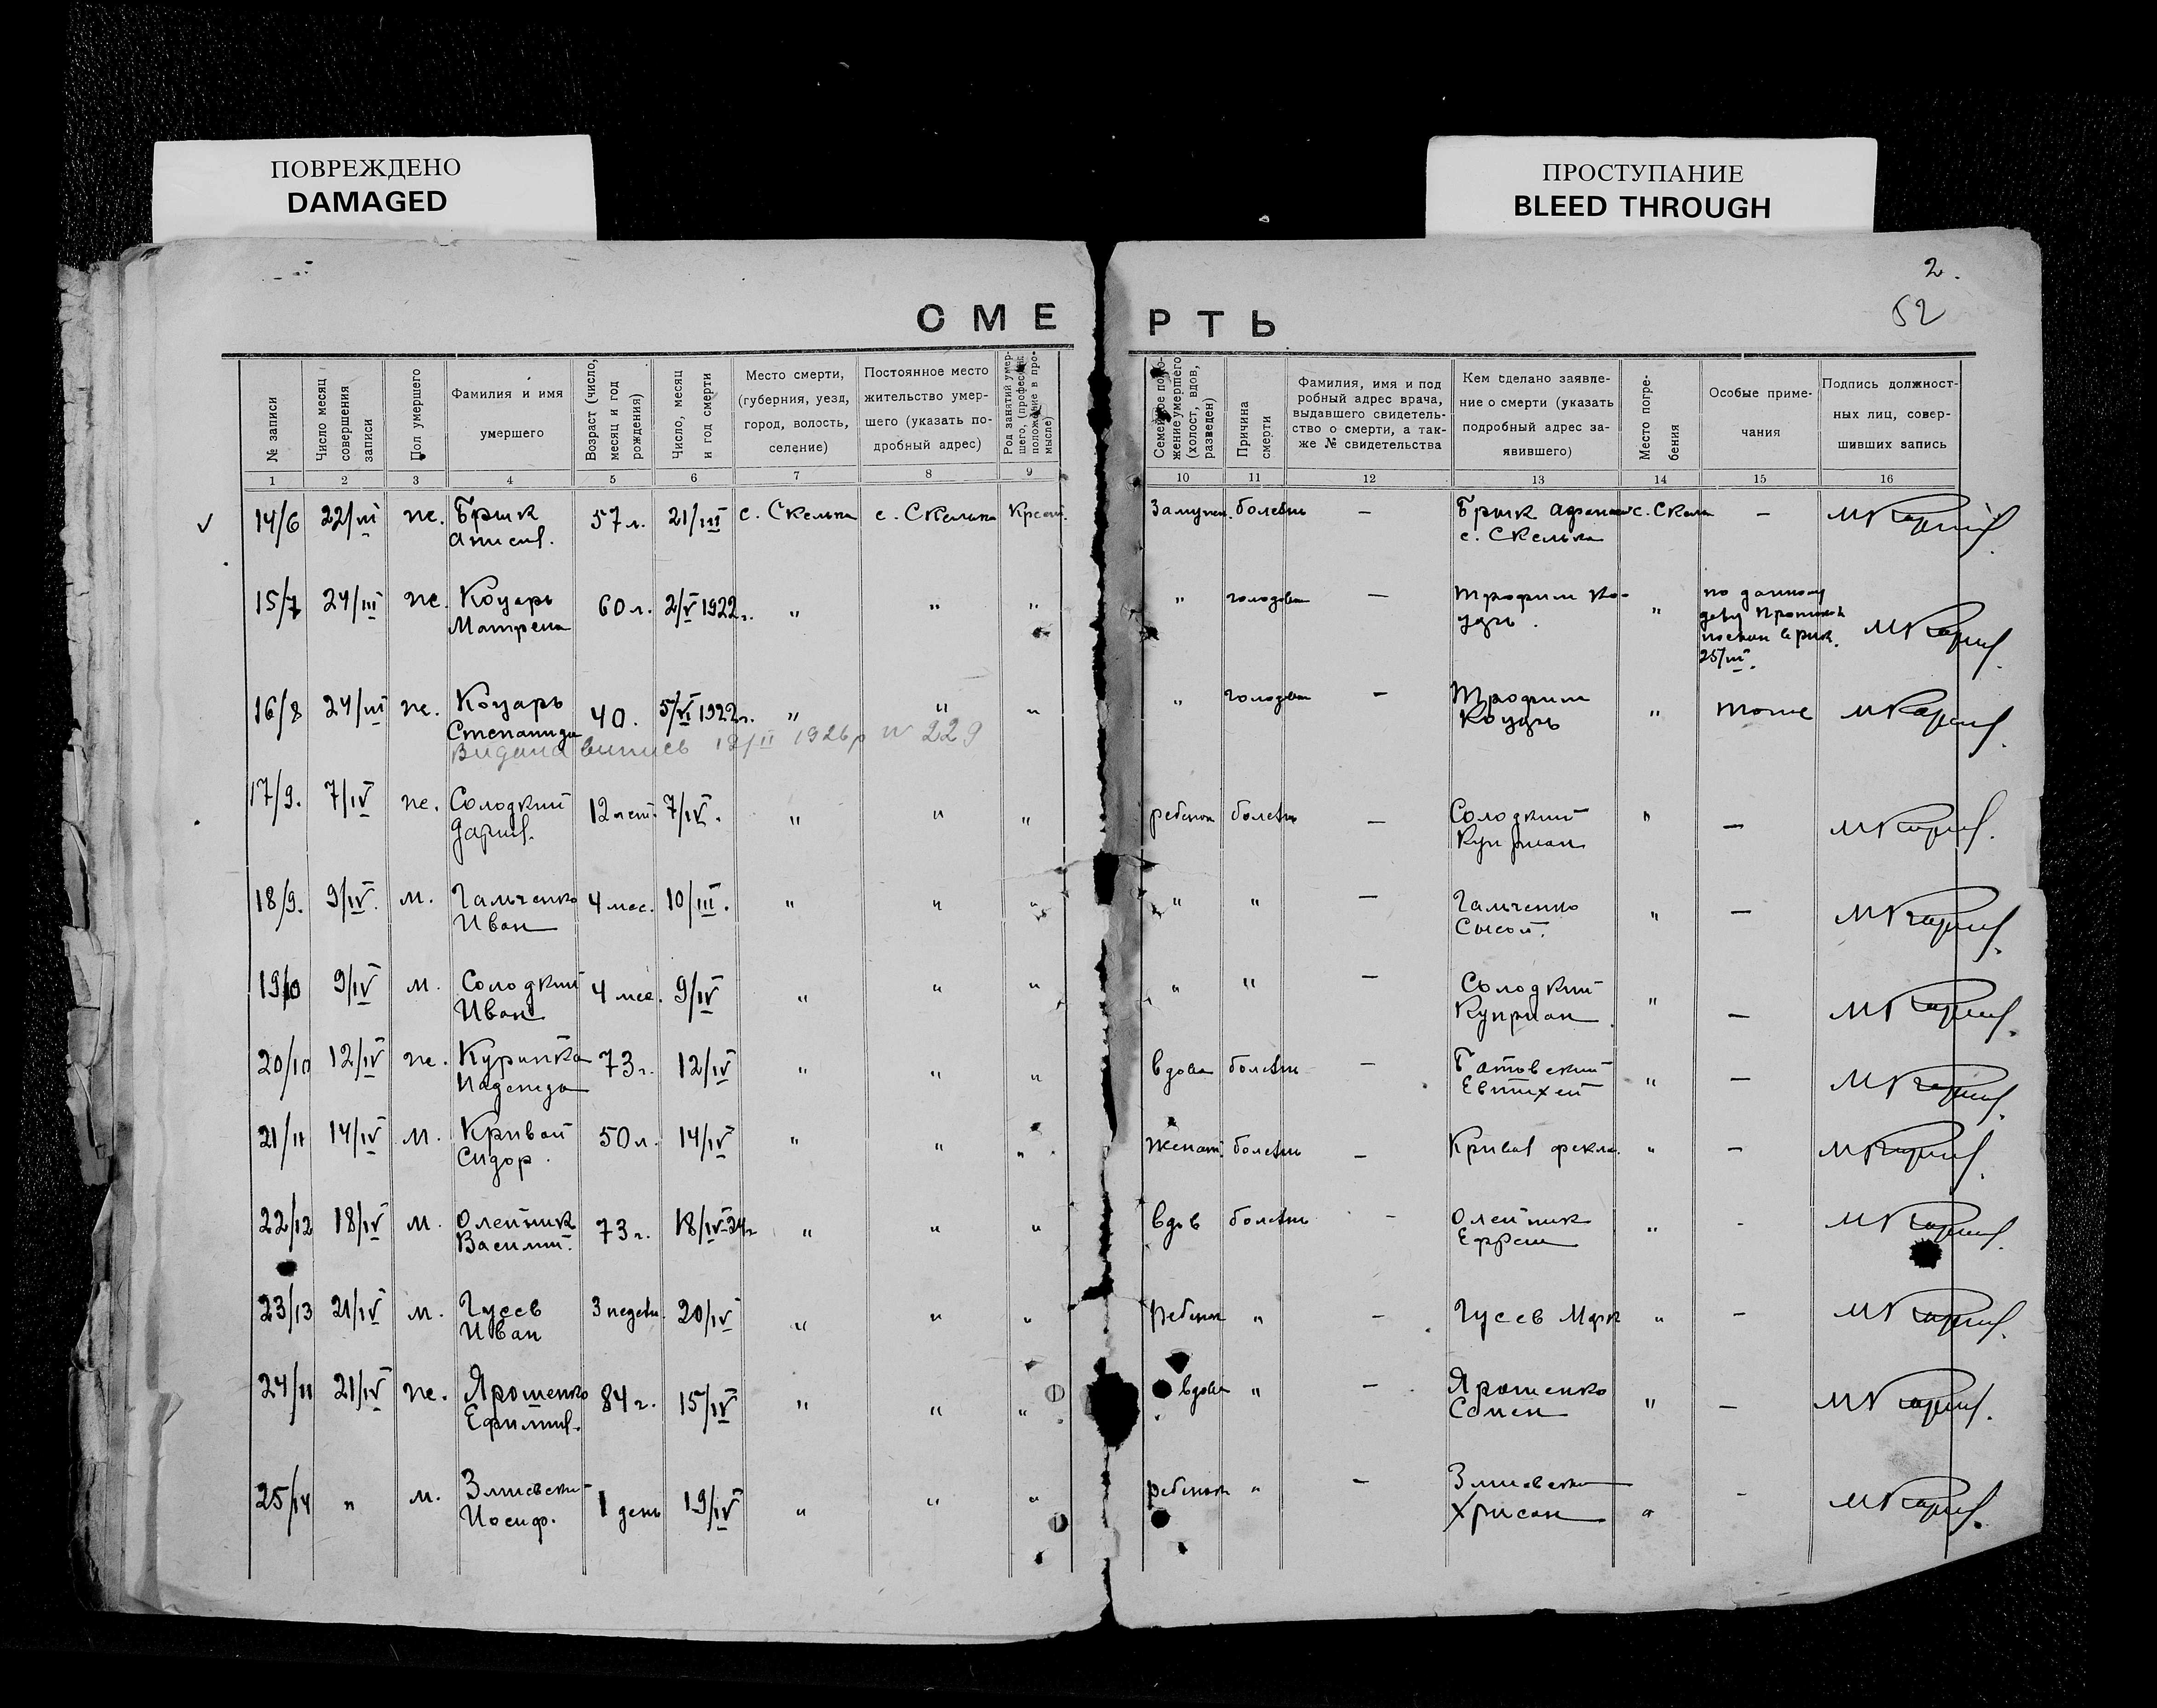 ПОВРЕЖДЕНО
DAMAGED
ПРОСТУПАНИЕ
BLEED THROUGH
2.
52
СМЕРТЬ
№ записи
Число месяц совершения записи
Пол умершего
Фамилия и имя умершего
Возраст (число, месяц и год рождения)
Число, месяц и год смерти
Место смерти, (губерния, уезд, город, волость, селение)
Постоянное место жительство умершего (указать подробный адрес)
Род занятий умершего, (профессия, положение в промысле)
Семейное положение умершего (холост, вдов, разведен)
Причина смерти
Фамилия, имя и подробный адрес врача, выдавшего свидетельство о смерти, а также № свидетельства
Кем сделано заявление о смерти (указать подробный адрес заявившего)
Место погребения
Особые примечания
Подпись должностных лиц, совершивших запись
1 2 3 4 5 6 7 8 9 10 11 12 13 14 15 16
14/6 22/III ж. Брик 57 л. 21/III с. Скелька с. Скелька Замужн. болезнь — Брик с. Скельк —
с. Скелька
15/7 24/III ж. Коцарь Матрена 60 л. 2/V 1922 г. " " " " голодовк — Трофим Коцарь "
по данному делу
25/III.
16/8 24/III ж. Коцарь Степанида 40. 5/VI 1922 г. " " " " голодовк — Трофим Коцарь " тоже
Видана випись 12/II 1926 р № 229
17/9. 7/IV ж. Солодкий Дария. 12 лет. 7/IV. " " " ребенок болезнь — Солодкий Куприан " —
18/9. 9/IV. м. Гальченко Иван 4 мес. 10/III. " " " " " — Гальченко Сысой. " —
19/10 9/IV м. Солодкий Иван 4 мес. 9/IV " " " " " — Солодкий Куприан. " —
20/10 12/IV ж. Надежда 73 г. 12/IV " " " вдова болезнь — Батовский Евтихей " —
21/11 14/IV м. Кривой Сидор. 50 л. 14/IV " " " женат. болезнь — Кривая Фекла. " —
22/12 18/IV м. Олейник Василий. 73 г. 18/IV-24 г " " " вдов болезнь - Олейник " -
23/13 21/IV м. Гусев Иван 3 недели. 20/IV " " " ребенок " — Гусев Марк " —
24/11 21/IV ж. Ярошенко Ефимия. 84 г. 15/IV " " " вдова " — Ярошенко Семен " —
25/14 " м. Змиевский Иосиф. 1 день 19/IV " " " ребенок " — Змиевский Хрисан " -